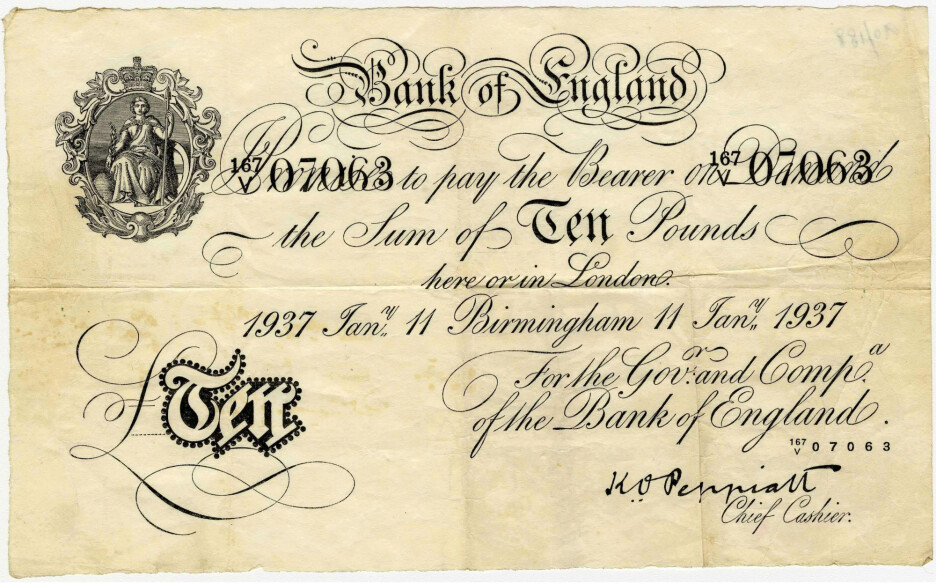 Bank of England
I Promise to pay the Bearer on Demand
167
V 07063
167
V 07063
the Sum of Ten Pounds
here or in London.
1937 Jan.y 11 Birmingham 11 Jan.y 1937
For the Gov.r and Comp.a
of the Bank of England.
167
V 07063
£ Ten
K.O. Peppiatt
Chief Cashier.